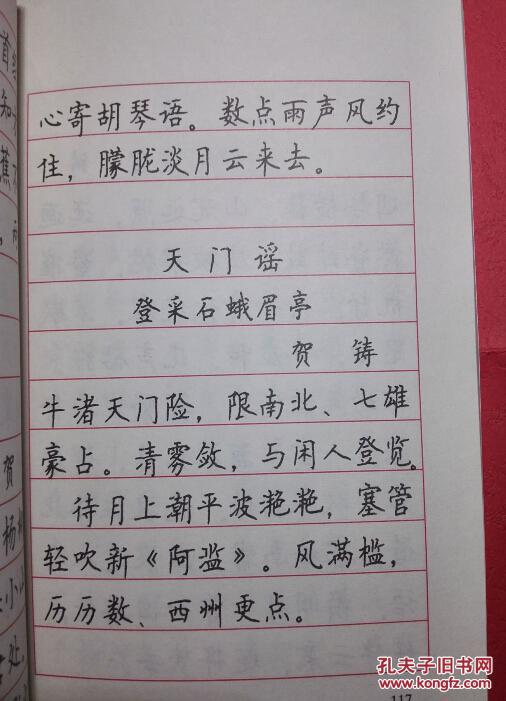 心寄胡琴语。数点雨声风约
住，朦胧淡月云来去。
天门谣
登采石蛾眉亭
贺铸
牛渚天门险，限南北、七雄
豪占。清雾敛，与闲人登览。
待月上潮平波滟滟，塞管
轻吹新《阿滥》。风满槛，
历历数、西州更点。
117
孔夫子旧书网
www.kongfz.com